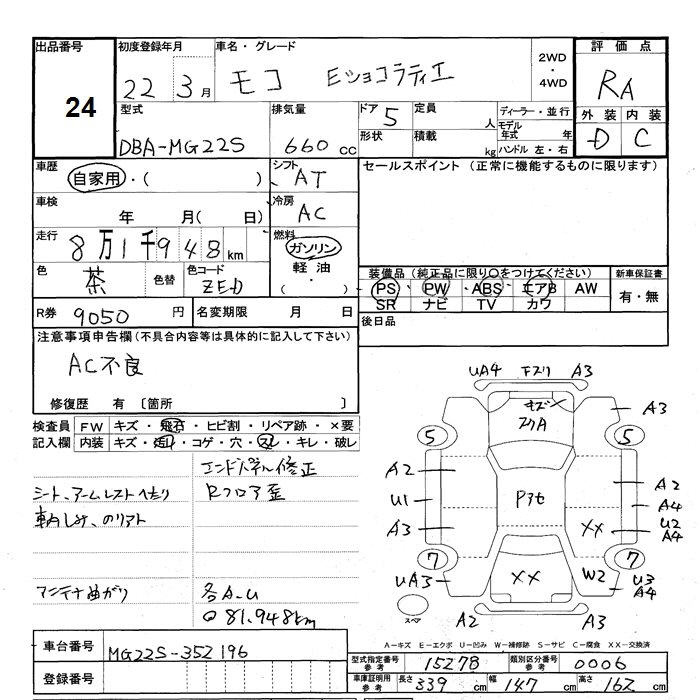 出品番号
24
初度登録年月
22年3月
車名・グレード
モコ Eショコラティエ
2WD
・
4WD
評価点
RA
外装 内装
D C
型式
DBA-MG22S
排気量
660cc
ドア
5
定員
人
形状
積載
kg
ディーラー・並行
モデル年式 年
ハンドル 左・右
車歴
自家用・( )
シフト
AT
車検
年 月( 日)
冷房
AC
走行
8万1千948km
燃料
ガソリン
軽油・
( )
色
茶
色替
色コード
ZED
R券
9050円
名変期限 月 日
セールスポイント(正常に機能するものに限ります)
装備品(純正品に限り○をつけてください)
PS PW ABS エアB AW
SR ナビ TV カワ
新車保証書
有・無
後日品
注意事項申告欄(不具合内容等は具体的に記入して下さい)
AC不良
修復歴 有 〔箇所 〕
検査員記入欄
FW キズ・飛石・ヒビ割・リペア跡・×要
内装 キズ・汚れ・コゲ・穴・スレ・キレ・破レ
エンドパネル修正
シート、アームレストへたり
Rフロア歪
アンテナ曲がり
各A・U
81.948km
UA4 下スリ A3
キズ
A3
5 5
A2
U1
A3
A2
A4
XX
U2
A4
7 7
UA3
XX
W2
U3
A4
スペア
A2 A3
A-キズ E-エクボ U-凹み W-補修跡 S-サビ C-腐食 XX-交換済
車台番号
MG22S-352196
登録番号
型式指定番号
参考
15278
類別区分番号
参考
0006
車庫証明用
参考
長さ 339cm 幅 147cm 高さ 162cm